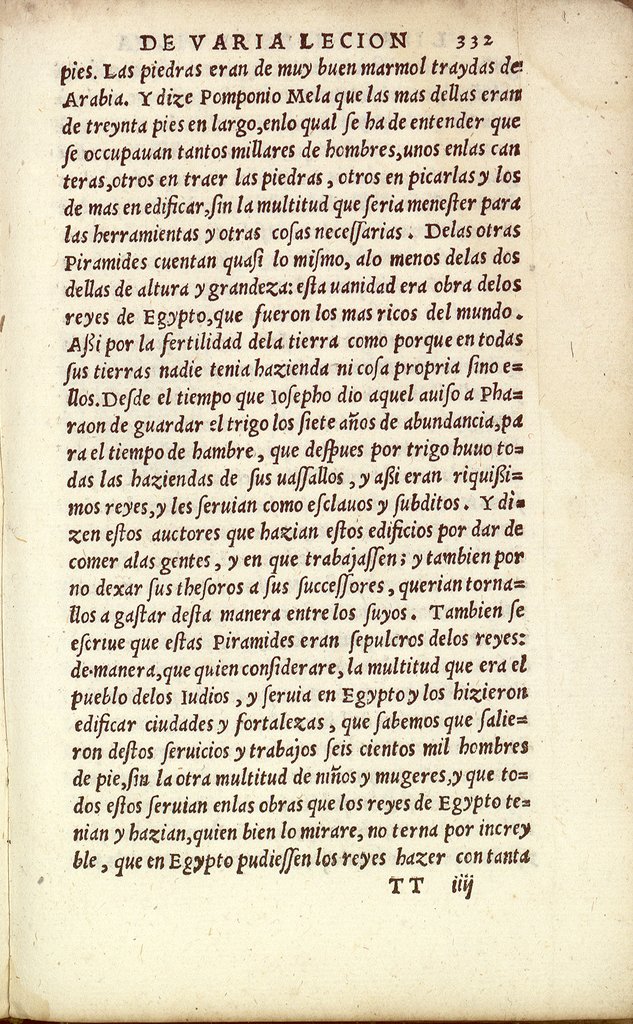 DE VARIA LECION 332
pies. Las piedras eran de muy buen marmol traydas de
Arabia. Y dize Pomponio Mela que las mas dellas eran
de treynta pies en largo,enlo qual ſe ha de entender que
ſe occupauan tantos millares de hombres,unos enlas can
teras,otros en traer las piedras, otros en picarlas y los
de mas en edificar,ſin la multitud que ſeria meneſter para
las herramientas y otras coſas neceſſarias. Delas otras
Piramides cuentan quaſi lo miſmo, alo menos delas dos
dellas de altura y grandeza: eſta uanidad era obra delos
reyes de Egypto,que fueron los mas ricos del mundo.
Aßi por la fertilidad dela tierra como porque en todas
ſus tierras nadie tenia hazienda ni coſa propria ſino e=
llos. Deſde el tiempo que Ioſepho dio aquel auiſo a Pha=
raon de guardar el trigo los ſiete años de abundancia,pa
ra el tiempo de hambre, que deſpues por trigo huuo to=
das las haziendas de ſus uaſſallos, y aßi eran riquißi=
mos reyes,y les ſeruian como eſclauos y ſubditos. Y di=
zen eſtos auctores que hazian eſtos edificios por dar de
comer alas gentes, y en que trabajaſſen; y tambien por
no dexar ſus theſoros a ſus ſucceſſores, querian torna=
llos a gaſtar deſta manera entre los ſuyos. Tambien ſe
eſcriue que eſtas Piramides eran ſepulcros delos reyes:
de manera,que quien conſiderare, la multitud que era el
pueblo delos Iudios, y ſeruia en Egypto y los hizieron
edificar ciudades y fortalezas, que ſabemos que ſalie=
ron deſtos ſeruicios y trabajos ſeis cientos mil hombres
de pie,ſin la otra multitud de niños y mugeres,y que to=
dos eſtos ſeruian enlas obras que los reyes de Egypto te=
nian y hazian,quien bien lo mirare, no terna por increy
ble, que en Egypto pudieſſen los reyes hazer con tanta
TT iiij